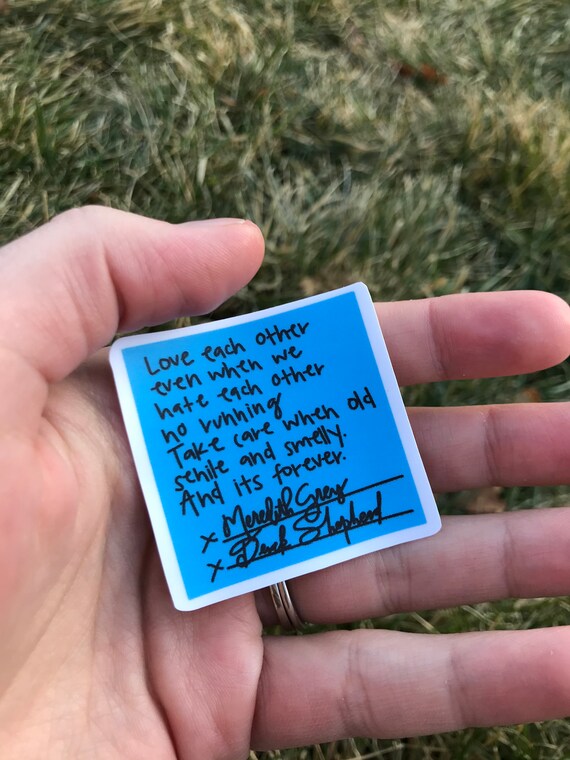 Love each other
even when we
hate each other
no running
Take care when old
senile and smelly.
And its forever.
x Meredith Grey
x Derek Shepherd